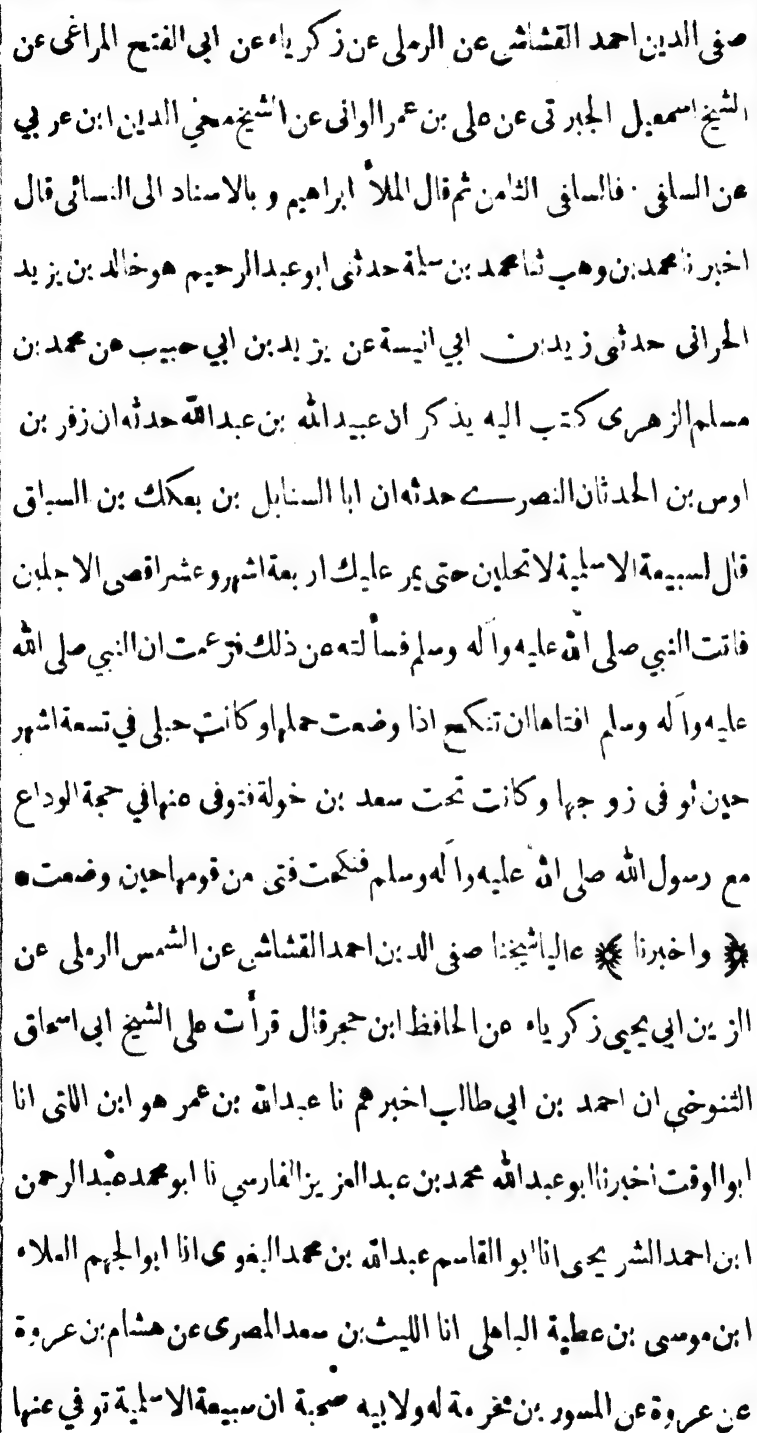 صفى الدين احمد القشاشى عن الرملى عن زكرياء عن ابى الفتح المراغى عن
الشيخ اسمعيل الجبرتى عن على بن عمر الوانى عن الشيخ محيى الدين ابن عربي
عن السلفى . فالسلفى الثامن ثم قال الملأ ابراهيم و بالاسناد الى النسائى قال
اخبرنا محمد بن وهب ثنا محمد بن سلمة حدثنى ابو عبد الرحيم هو خالد بن يزيد
الحرانى حدثنى زيد بن ابي انيسة عن يزيد بن ابي حبيب عن محمد بن
مسلم الزهرى كتب اليه يذكر ان عبيد الله بن عبد الله حدثه ان زفر بن
اوس بن الحدثان النصرى حدثه ان ابا السنابل بن بعكك بن السباق
قال لسبيعة الاسلمية لا تحلين حتى يمر عليك اربعة اشهر وعشر اقصى الاجلين
فاتت النبي صلى الله عليه وآله وسلم فسألته عن ذلك فزعمت ان النبي صلى الله
عليه وآله وسلم افتاها ان تنكح اذا وضعت حملها وكانت حبلى في تسعة اشهر
حين توفى زوجها وكانت تحت سعد بن خولة فتوفى عنها في حجة الوداع
مع رسول الله صلى الله عليه وآله وسلم فنكحت فتى من قومها حين وضعت •
﴿ واخبرنا ﴾ عاليا شيخنا صفى الدين احمد القشاشى عن الشمس الرملى عن
الزين ابي يحيى زكرياء عن الحافظ ابن حجر قال قرأت على الشيخ ابى اسحاق
التنوخى ان احمد بن ابي طالب اخبرهم نا عبد الله بن عمر هو ابن اللتى انا
ابو الوقت اخبرنا ابو عبد الله محمد بن عبد العزيز الفارسي نا ابو محمد عبد الرحمن
ابن احمد الشريحى انا ابو القاسم عبد الله بن محمد البغوى انا ابو الجهم العلاء
ابن موسى بن عطية الباهلى انا الليث بن سعد المصرى عن هشام بن عروة
عن عروة عن المسور بن مخرمة له ولابيه صحبة ان سبيعة الاسلمية توفي عنها